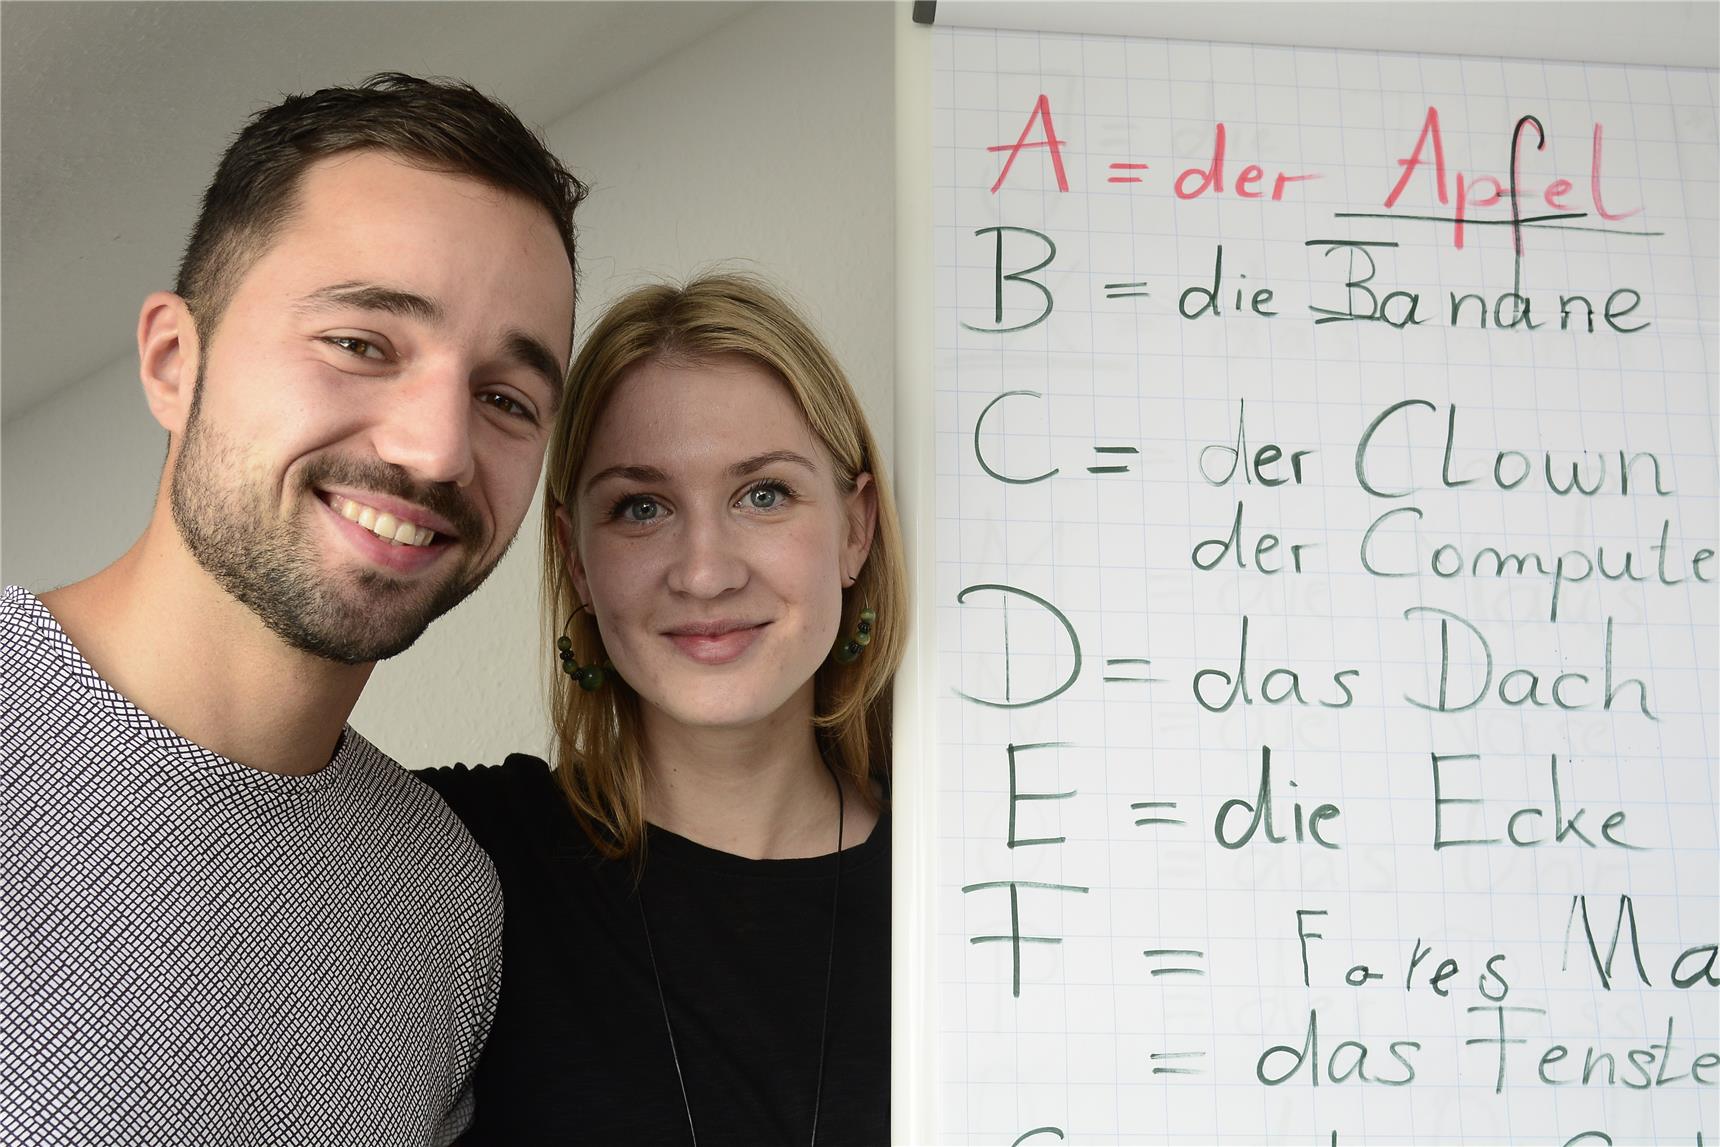 A = der Apfel
B = die Banane
C = der Clown
der Compute
D = das Dach
E = die Ecke
F = Fares Ma
= das Fenste